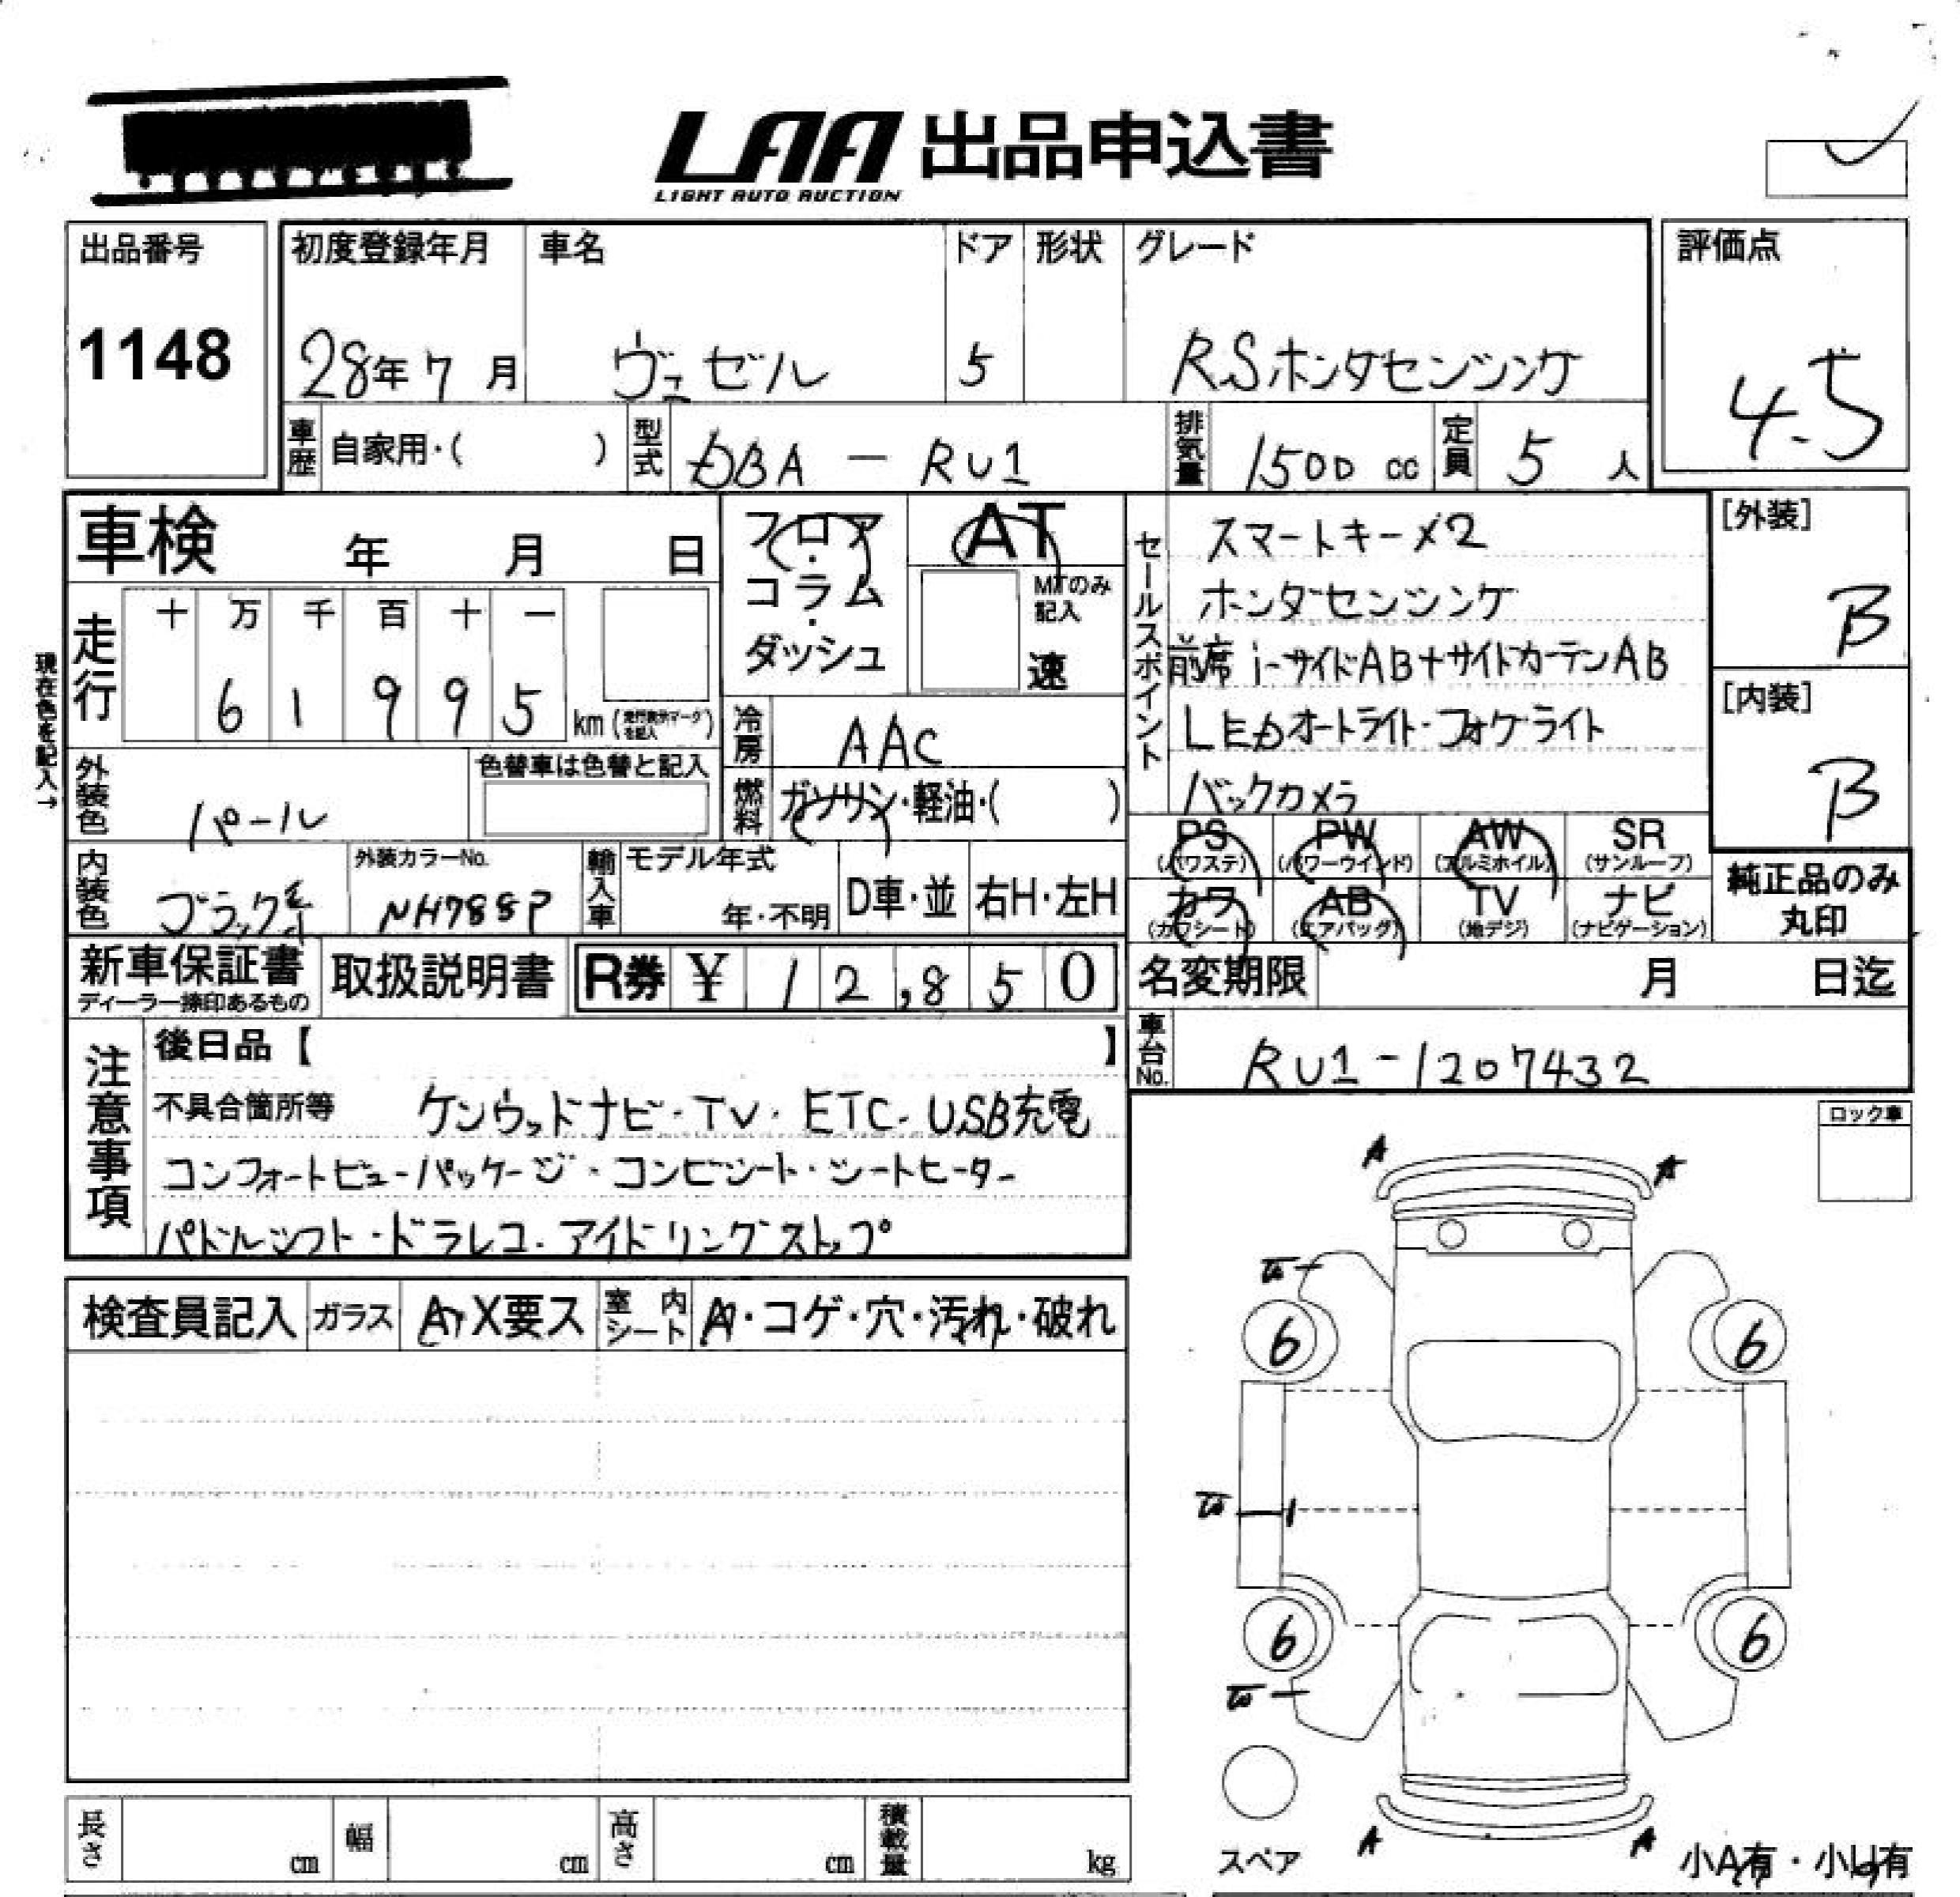 LAA 出品申込書
LIGHT AUTO AUCTION
出品番号
1148
初度登録年月
28年7月
車名
ヴェゼル
ドア
5
形状
グレード
RSホンダセンシング
評価点
4.5
車歴
自家用・( )
型式
DBA － RU1
排気量
1500 cc
定員
5 人
車検 年 月 日
フロア・コラム・ダッシュ
AT
MTのみ記入
速
走行
十 万 千 百 十 一
6 1 9 9 5 km (走行表示マークを記入)
現在色を記入→
冷房
AAC
燃料
ガソリン・軽油・( )
外装色
パール
色替車は色替と記入
内装色
ブラック系
外装カラーNo.
NH788P
輸入車
モデル年式
年・不明
D車・並
右H・左H
セールスポイント
スマートキー×2
ホンダセンシング
前席 i-サイドAB+サイドカーテンAB
LEDオートライト・フォグライト
バックカメラ
[外装]
B
[内装]
B
PS (パワステ)
PW (パワーウインド)
AW (アルミホイル)
SR (サンルーフ)
カワ (カワシート)
AB (エアバッグ)
TV (地デジ)
ナビ (ナビゲーション)
純正品のみ
丸印
新車保証書
ディーラー捺印あるもの
取扱説明書
R券 ¥ 12,850
名変期限 月 日迄
車台No.
RU1-1207432
注意事項
後日品【 】
不具合箇所等 ケンウッドナビ・TV・ETC・USB充電
コンフォートビューパッケージ・コンビシート・シートヒーター
パドルシフト・ドラレコ・アイドリングストップ
ロック車
検査員記入
ガラス
A・X要ス
室内シート
A・コゲ・穴・汚れ・破れ
A
A
6
6
6
6
A
A
スペア
小A有・小U有
長さ cm
幅 cm
高さ cm
積載量 kg